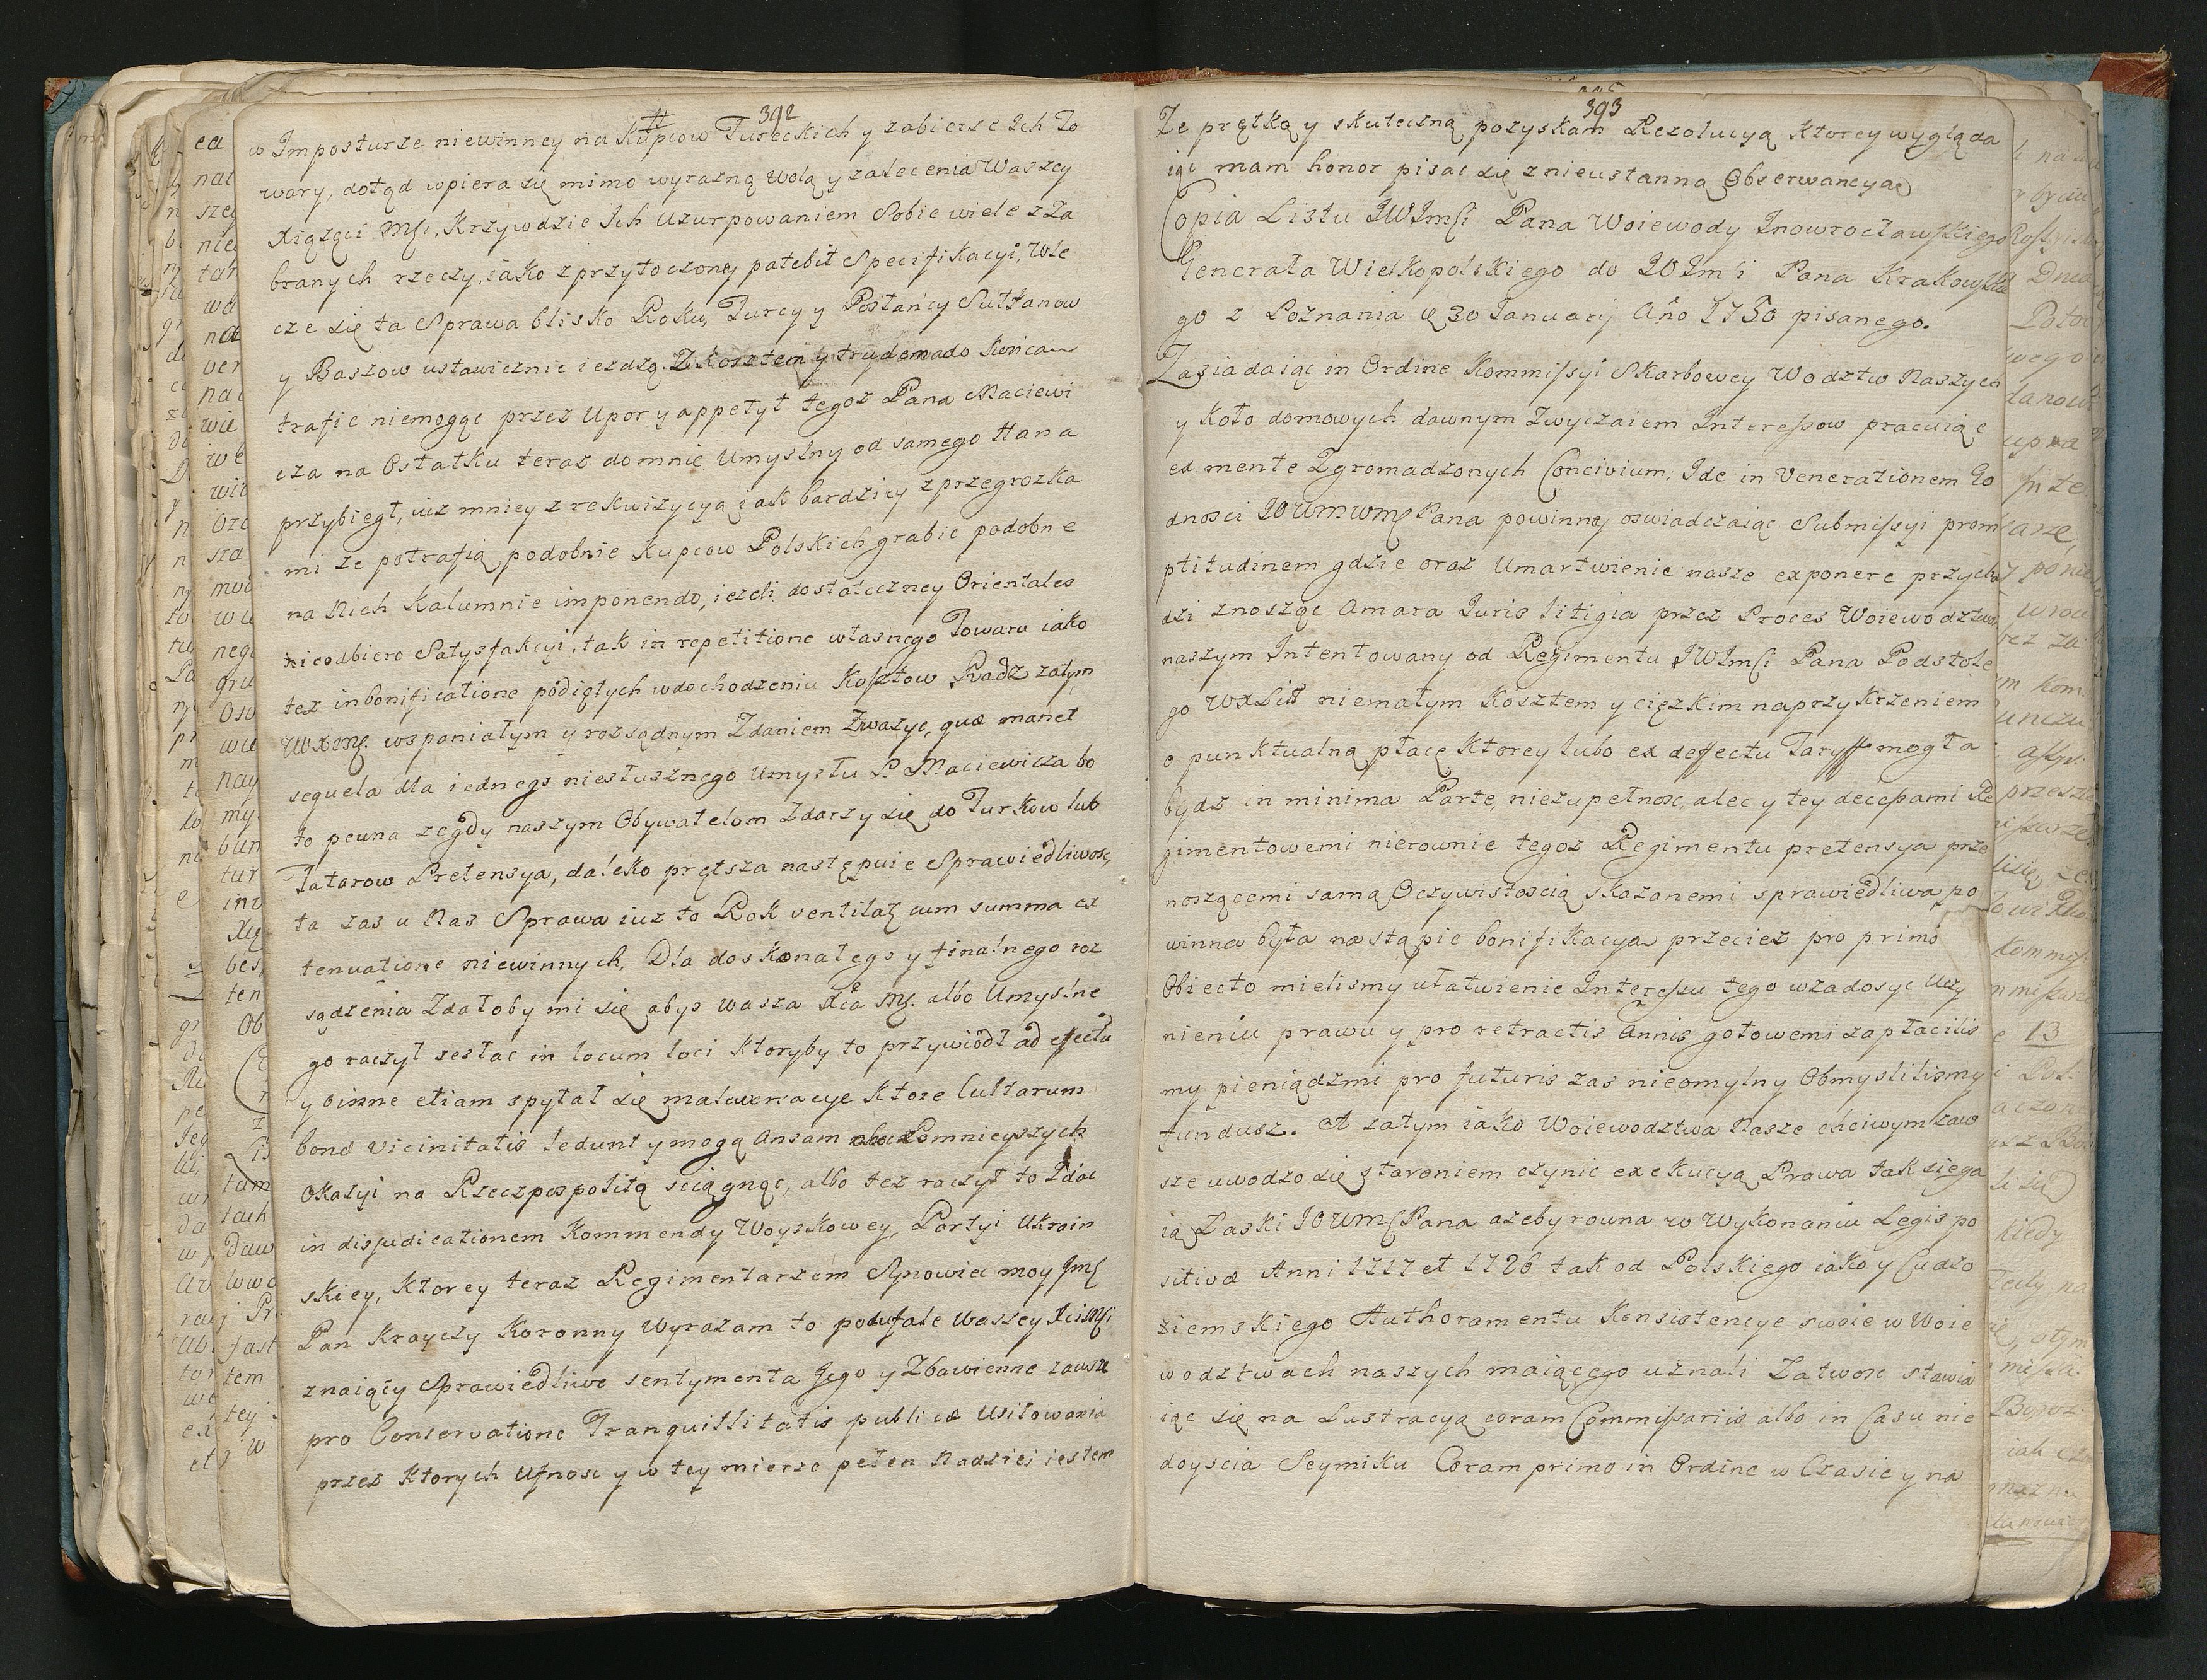 392
w Imposturze niewinney na Kupcow Tureckich y zabierze Ich To
wary, dotąd wpiera się mimo wyrazną wolą y zalecenia Waszey
Xiązęci Msci, Krzywdzie Ich Uzurpowaniem Sobie wiele z Za
branych rzeczy, iako z przytoczoney patebit Specifikacyi, Wle
cze się ta Sprawa blisko Roku, Turcy y Posłańcy Sułtanow
y Baszow ustawicznie iezdzą. Z Kosztem y trudem a do Końca
trafic niemogąc przez Upor y appetyt tegoz Pana Maciewi
cza na Ostatku teraz do mnie Umyslny od samego Hana
przybiegł, iuz mniey z rekwizycyą iak bardziey z przegrozka
mi ze potrafią podobnie Kupcow Polskich grabic podobne
na Nich Kalumnie imponendo, iezeli dostateczney Orientales
nieodbiero Satysfakcyi, tak in repetitione własnego Towaru iako
tez in bonificatione podiętych w dochodzeniu Kosztow Radz zatym
WXMsc. wspaniałym y rozsądnym Zdaniem Zwazyc, quæ manet
sequela dla iednego niesłusznego Umysłu P. Maciewicza bo
to pewna ze gdy naszym Obywatelom Zdarzy się do Turkow lub
Tatarow Pretensya, daleko prętsza następuie Sprawiedliwosc
ta zas u Nas Sprawa iuz to Rok ventilat cum summa ex
tenuatione niewinnych, Dla doskonałego y finalnego roz
sądzenia Zdałoby mi się abys wasza Xca Msc. albo Umyslne
go raczył zesłac in locum loci ktoryby to przywiodł ad effectu
y oinne etiam spytał się malwersacye Ktore lultarum
bonæ vicinitatis ledunt y mogą ansam Pomnieyszych
Okazyi na Rzeczpospolitą sciągnąc, albo tez raczył to Zdac
in disjudicationem Kommendy Woyskowey, Partyi Ukrain
skiey, Ktorey teraz Regimentarzem Synowiec moy Jmsc
Pan Krayczy Koronny Wyrazam to poufale Waszey XciMsci
znaiący Sprawiedliwe sentymenta Jego y Zbawienne zawsze
pro Conservatione Tranquillitatis publicæ Usiłowania
przez Ktorych Ufnosc y w tey mierze pełen Nadziei iestem
393
Ze prętką y skuteczną pozyskam Rezolucyą Ktorey wygląda
iąc mam honor pisac się z nieustanną Obserwancyą
Copia Listu JWJmsci Pana Woiewody Inowrocławskiego
Generała Wielkopolskiego do JOJmsci Pana Krakowskie
go z Poznania 30 Januarij Año 1750 pisanego.
Zasiadaiąc in Ordine Kommissyi Skarbowey Wodztw Naszych
y Koło domowych dawnym Zwyczaiem Interessow pracuiąc
ex mente Zgromadzonych Concivium, Ide in Venerationem Go
dnosci JOWMWMsc Pana powinney oswiadczaiąc Submissyi prom
ptitudinem gdzie oraz Umartwienie nasze exponere przycho
dzi znosząc amara Juris litigia przez Proces Woiewodztwa
naszym Intentowany od Regimentu JWJmsci Pana Podstole
go WXLitt niemałym Kosztem y cięzkim naprzykrzeniem
o punktualną płacę Ktorey lubo ex defectu Taryff mogła
bydz in minima Parte, niezupełnosc, alec y tey decessami Re
gimentowemi nierownie tegoz Regimentu pretensya prze
noszącemi samą Oczywistoscią skazanemi sprawiedliwa po
winna była nastąpic bonifikacya przeciez pro primo
Obiecto mielismy ułatwienie Interessu tego w zadosyc Uczy
nieniu prawu y pro retractis annis gotowemi zapłacilis
my pieniądzmi pro futuris zas nieomylny Obmyslilismy
fundusz. A zatym iako Woiewodztwa Nasze chciwym zaw
sze uwodzo się staraniem czynic exekucyą Prawa tak sięga
ią Łaski JOWMsc Pana azeby rowna w Wykonaniu Legis po
sitivæ Anni 1717 et 1726 tak od Polskiego iako y Cudzo
ziemskiego Authoramentu Konsistencye swoie w Woie
wodztwach naszych maiącego uznali Zatwosc stawia
iąc się na Lustracyą coram Commissariis albo in Casu nie
doyscia Seymiku Coram primo in Ordine w Czasie y na